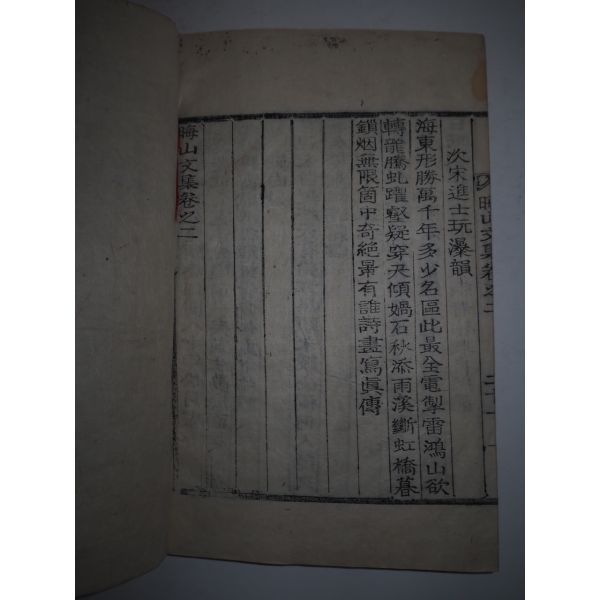 晦山文集卷之二
次宋進士玩瀑韻
海東形勝萬千年多少名區此最全電掣雷鴻山欲
轉龍騰虬躍壑疑穿天傾媧石秋添雨溪斷虹橋暮
鎖烟無限箇中奇絶景有誰詩畫寫眞傳
晦山文集卷之二